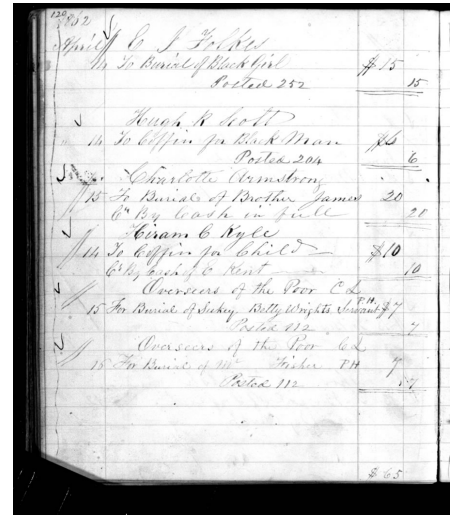 120
1862
April 14 E J Folkes
14 To Burial of Black Girl $15
Posted 252 15
Hugh R Scott
14 To Coffin for Black Man $6
Posted 204 6
Charlotte Armstrong
15 To Burial of Brother James 20
Cr By Cash in full 20
Hiram C Kyle
14 To Coffin for Child $10
Cr By Cash C Kent 10
Overseers of the Poor C L
15 For Burial of Suckey Betty Wrights Servant P.H. $7
Posted 112 7
Overseers of the Poor C L
15 For Burial of Mr Fisher P H 7
Posted 112 7
$65